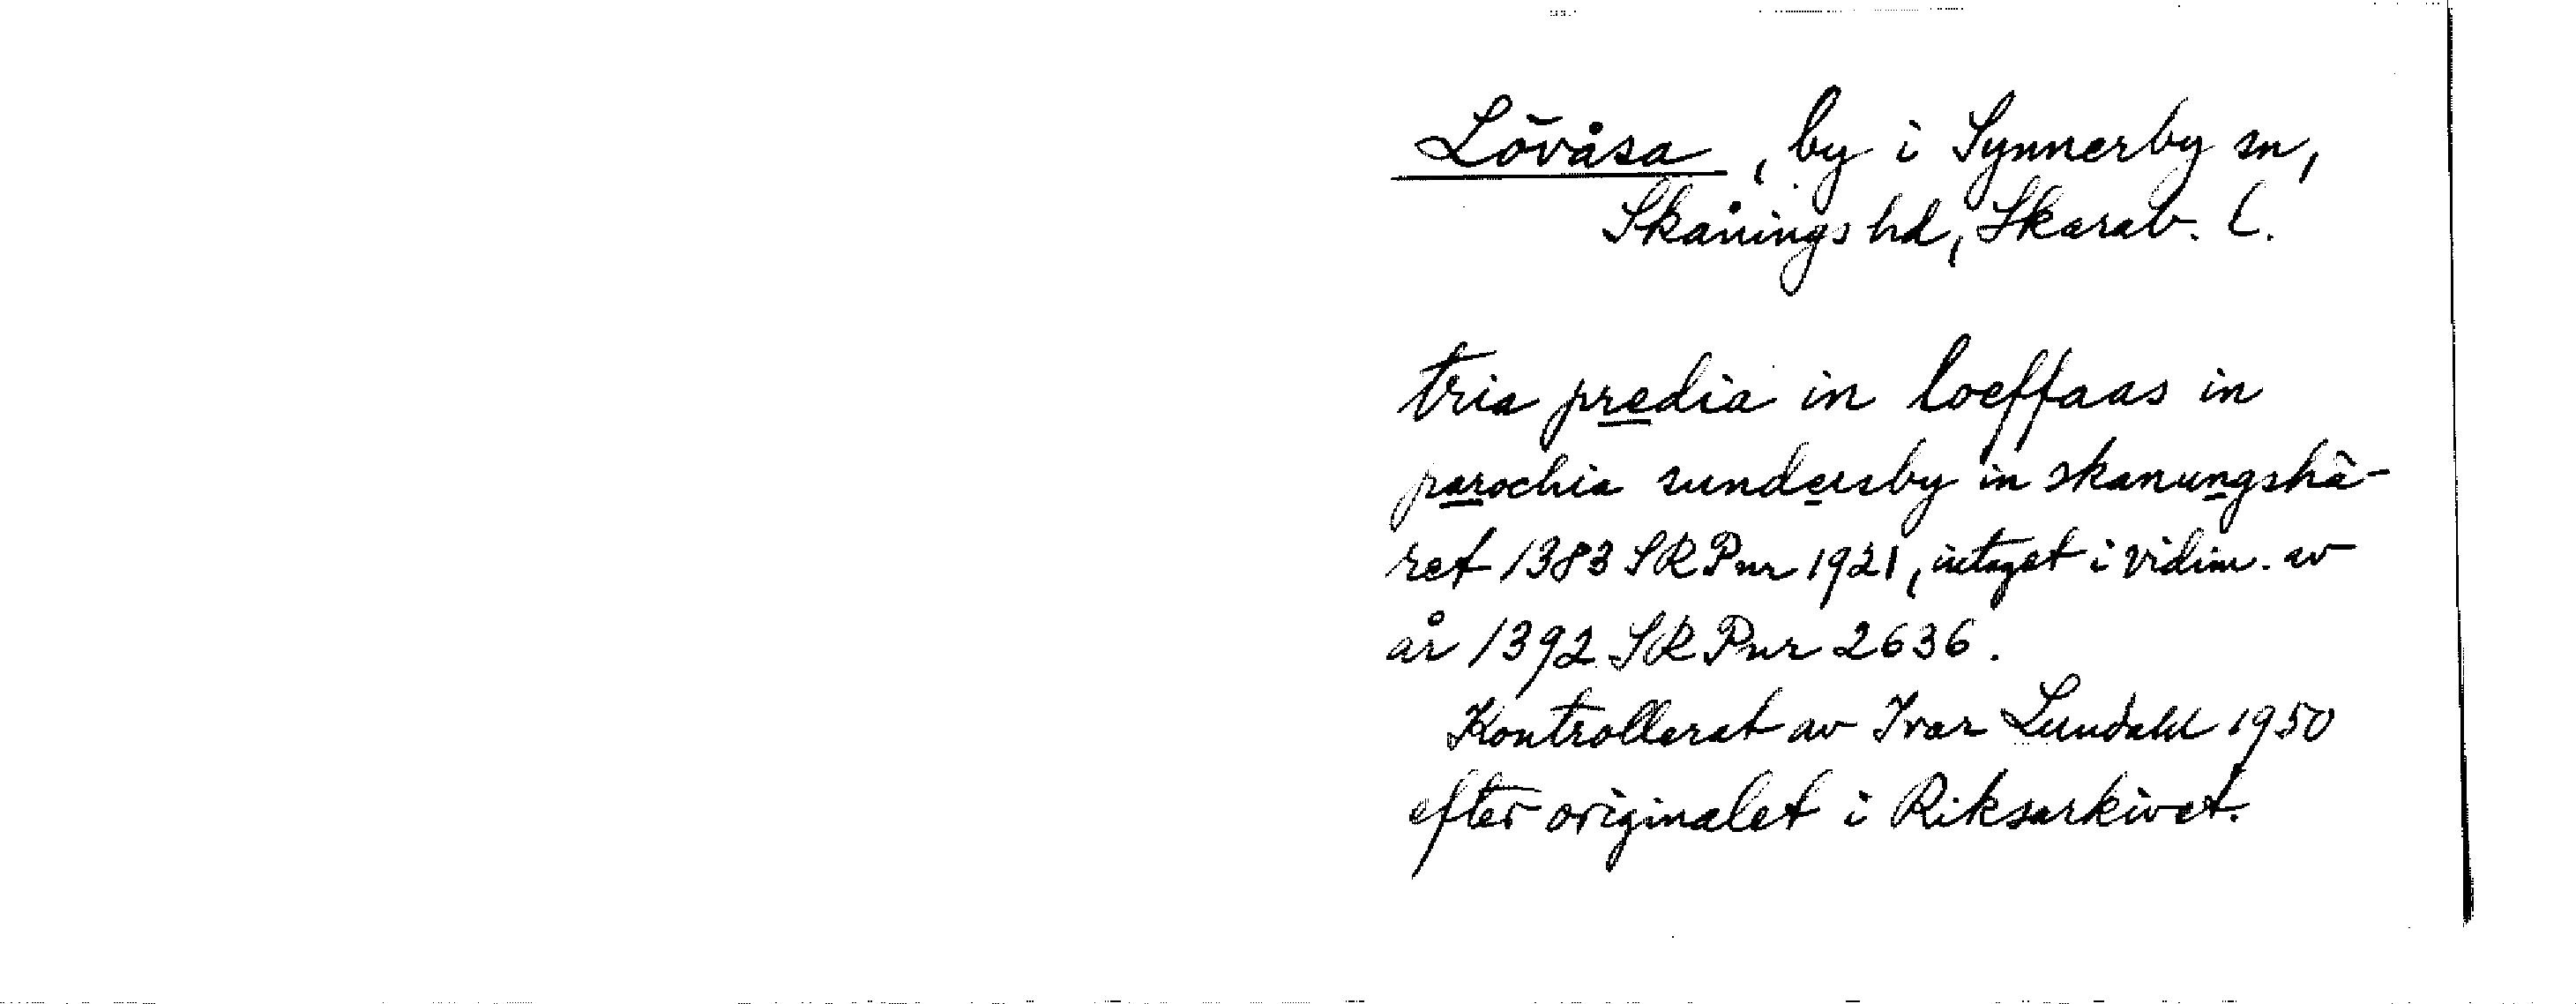 Lövåsa, by i Synnerby sn,
Skånings hd, Skarab. l.
tria predia in loeffaas in
parochia sundersby in skanungshä-
ret 1383 SRPnr 1921, intaget i vidim. av
år 1392 SRPnr 2636.
Kontrollerat av Ivar Lundahl 1950
efter originalet i Riksarkivet.